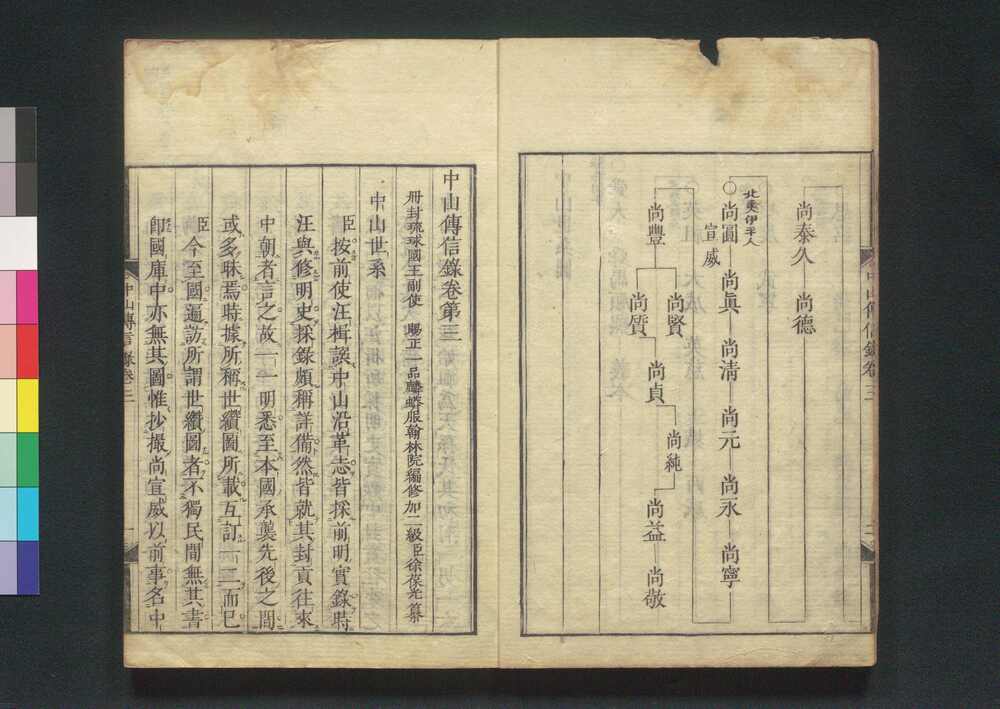 尚泰久 尚德
北夷伊平人
尚圓 尚眞 尚清 尚元 尚永 尚寧
宣威
尚豐
尚賢
尚質
尚貞
尚純
尚益 尚敬
中山傳信錄卷第三
冊封琉球國王副使 賜正一品麟蟒服翰林院編修加二級臣徐葆光纂
中山世系
臣按前使汪楫譔中山沿革志皆採前明實錄時
汪與修明史採錄頗稱詳備然皆就其封貢往來
中朝者言之故一一明悉至本國承襲先後之間
或多昧焉時據所稱世纘圖所載互訂一二而巳
臣今至國遍訪所謂世纘圖者不獨民間無其書
卽國庫中亦無其圖惟抄撮尚宣威以前事名中
中山傳信錄卷三
一